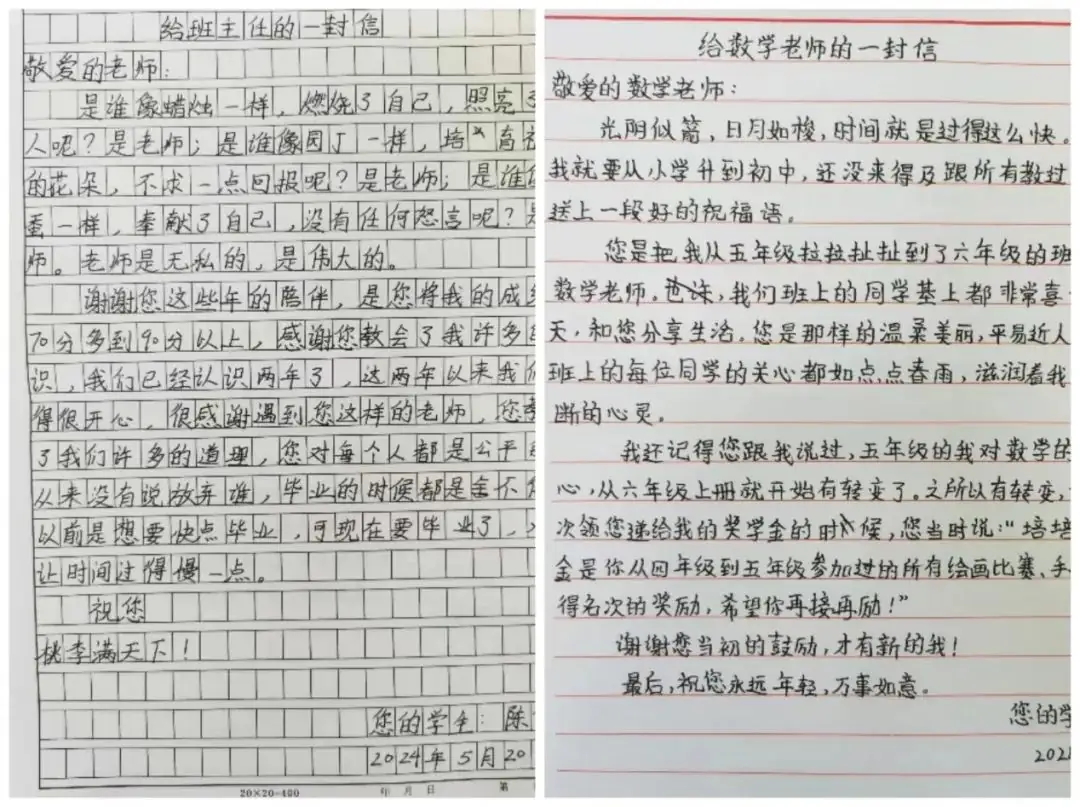 给班主任的一封信
敬爱的老师：
是谁像蜡烛一样，燃烧了自己，照亮了
人呢？是老师；是谁像园丁一样，培育祖
的花朵，不求一点回报呢？是老师；是谁
蚕一样，奉献了自己，没有任何怨言呢？是
师。老师是无私的，是伟大的。
谢谢您这些年的陪伴，是您将我的成绩
70分多到90分以上，感谢您教会了我许多
识，我们已经认识两年了，这两年以来我们
得很开心，很感谢遇到您这样的老师，您教
了我们许多的道理，您对每个人都是公平
从来没有说放弃谁，毕业的时候都是舍不
以前是想要快点毕业，可现在要毕业了，
让时间过得慢一点。
祝您
桃李满天下！
您的学生：陈
2024年5月20
20×20=400 年 月 日 第
给数学老师的一封信
敬爱的数学老师：
光阴似箭，日月如梭，时间就是过得这么快。
我就要从小学升到初中，还没来得及跟所有教过
送上一段好的祝福语。
您是把我从五年级拉拉扯扯到了六年级的班
数学老师。也许，我们班上的同学基上都非常喜
天，和您分享生活。您是那样的温柔美丽，平易近人
班上的每位同学的关心都如点点春雨，滋润着我
断的心灵。
我还记得您跟我说过，五年级的我对数学的
心，从六年级上册就开始有转变了。之所以有转变，
次领您递给我的奖学金的时候，您当时说：“培培
金是你从四年级到五年级参加过的所有绘画比赛、手
得名次的奖励，希望你再接再励！”
谢谢您当初的鼓励，才有新的我！
最后，祝您永远年轻，万事如意。
您的学
202